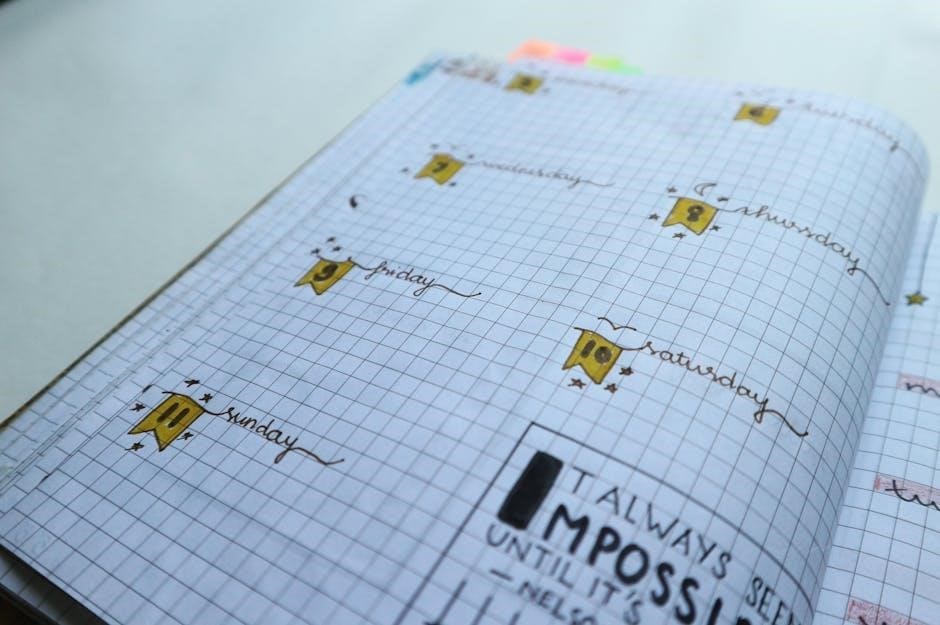 7 wednesday
8 thursday
9 friday
10 saturday
11 sunday
IT ALWAYS SEEM
IMPOSSI
UNTIL IT'S
– NELSO